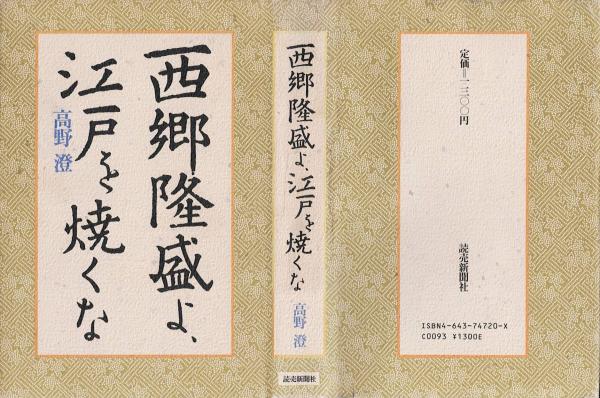 西郷隆盛よ、
江戸を焼くな
高野 澄
西郷隆盛よ、江戸を焼くな
高野 澄
読売新聞社
定価=一三〇〇円
読売新聞社
ISBN4-643-74720-X
C0093 ¥1300E